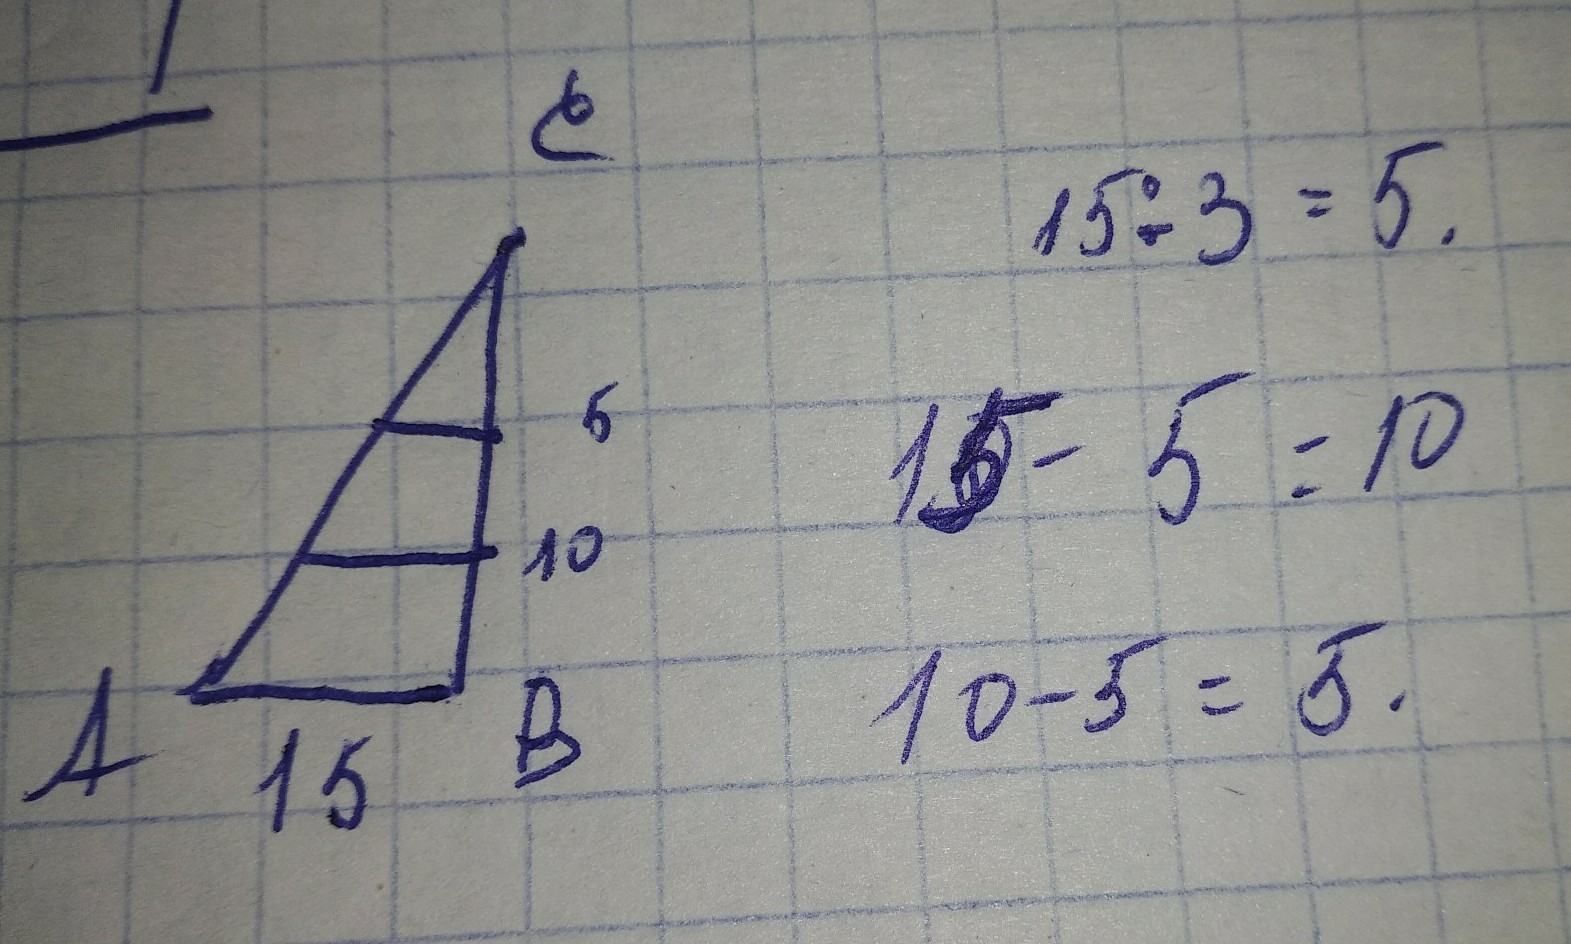 C
15÷3 = 5.
5
15 - 5 = 10
10
10 - 5 = 5.
A
15
B